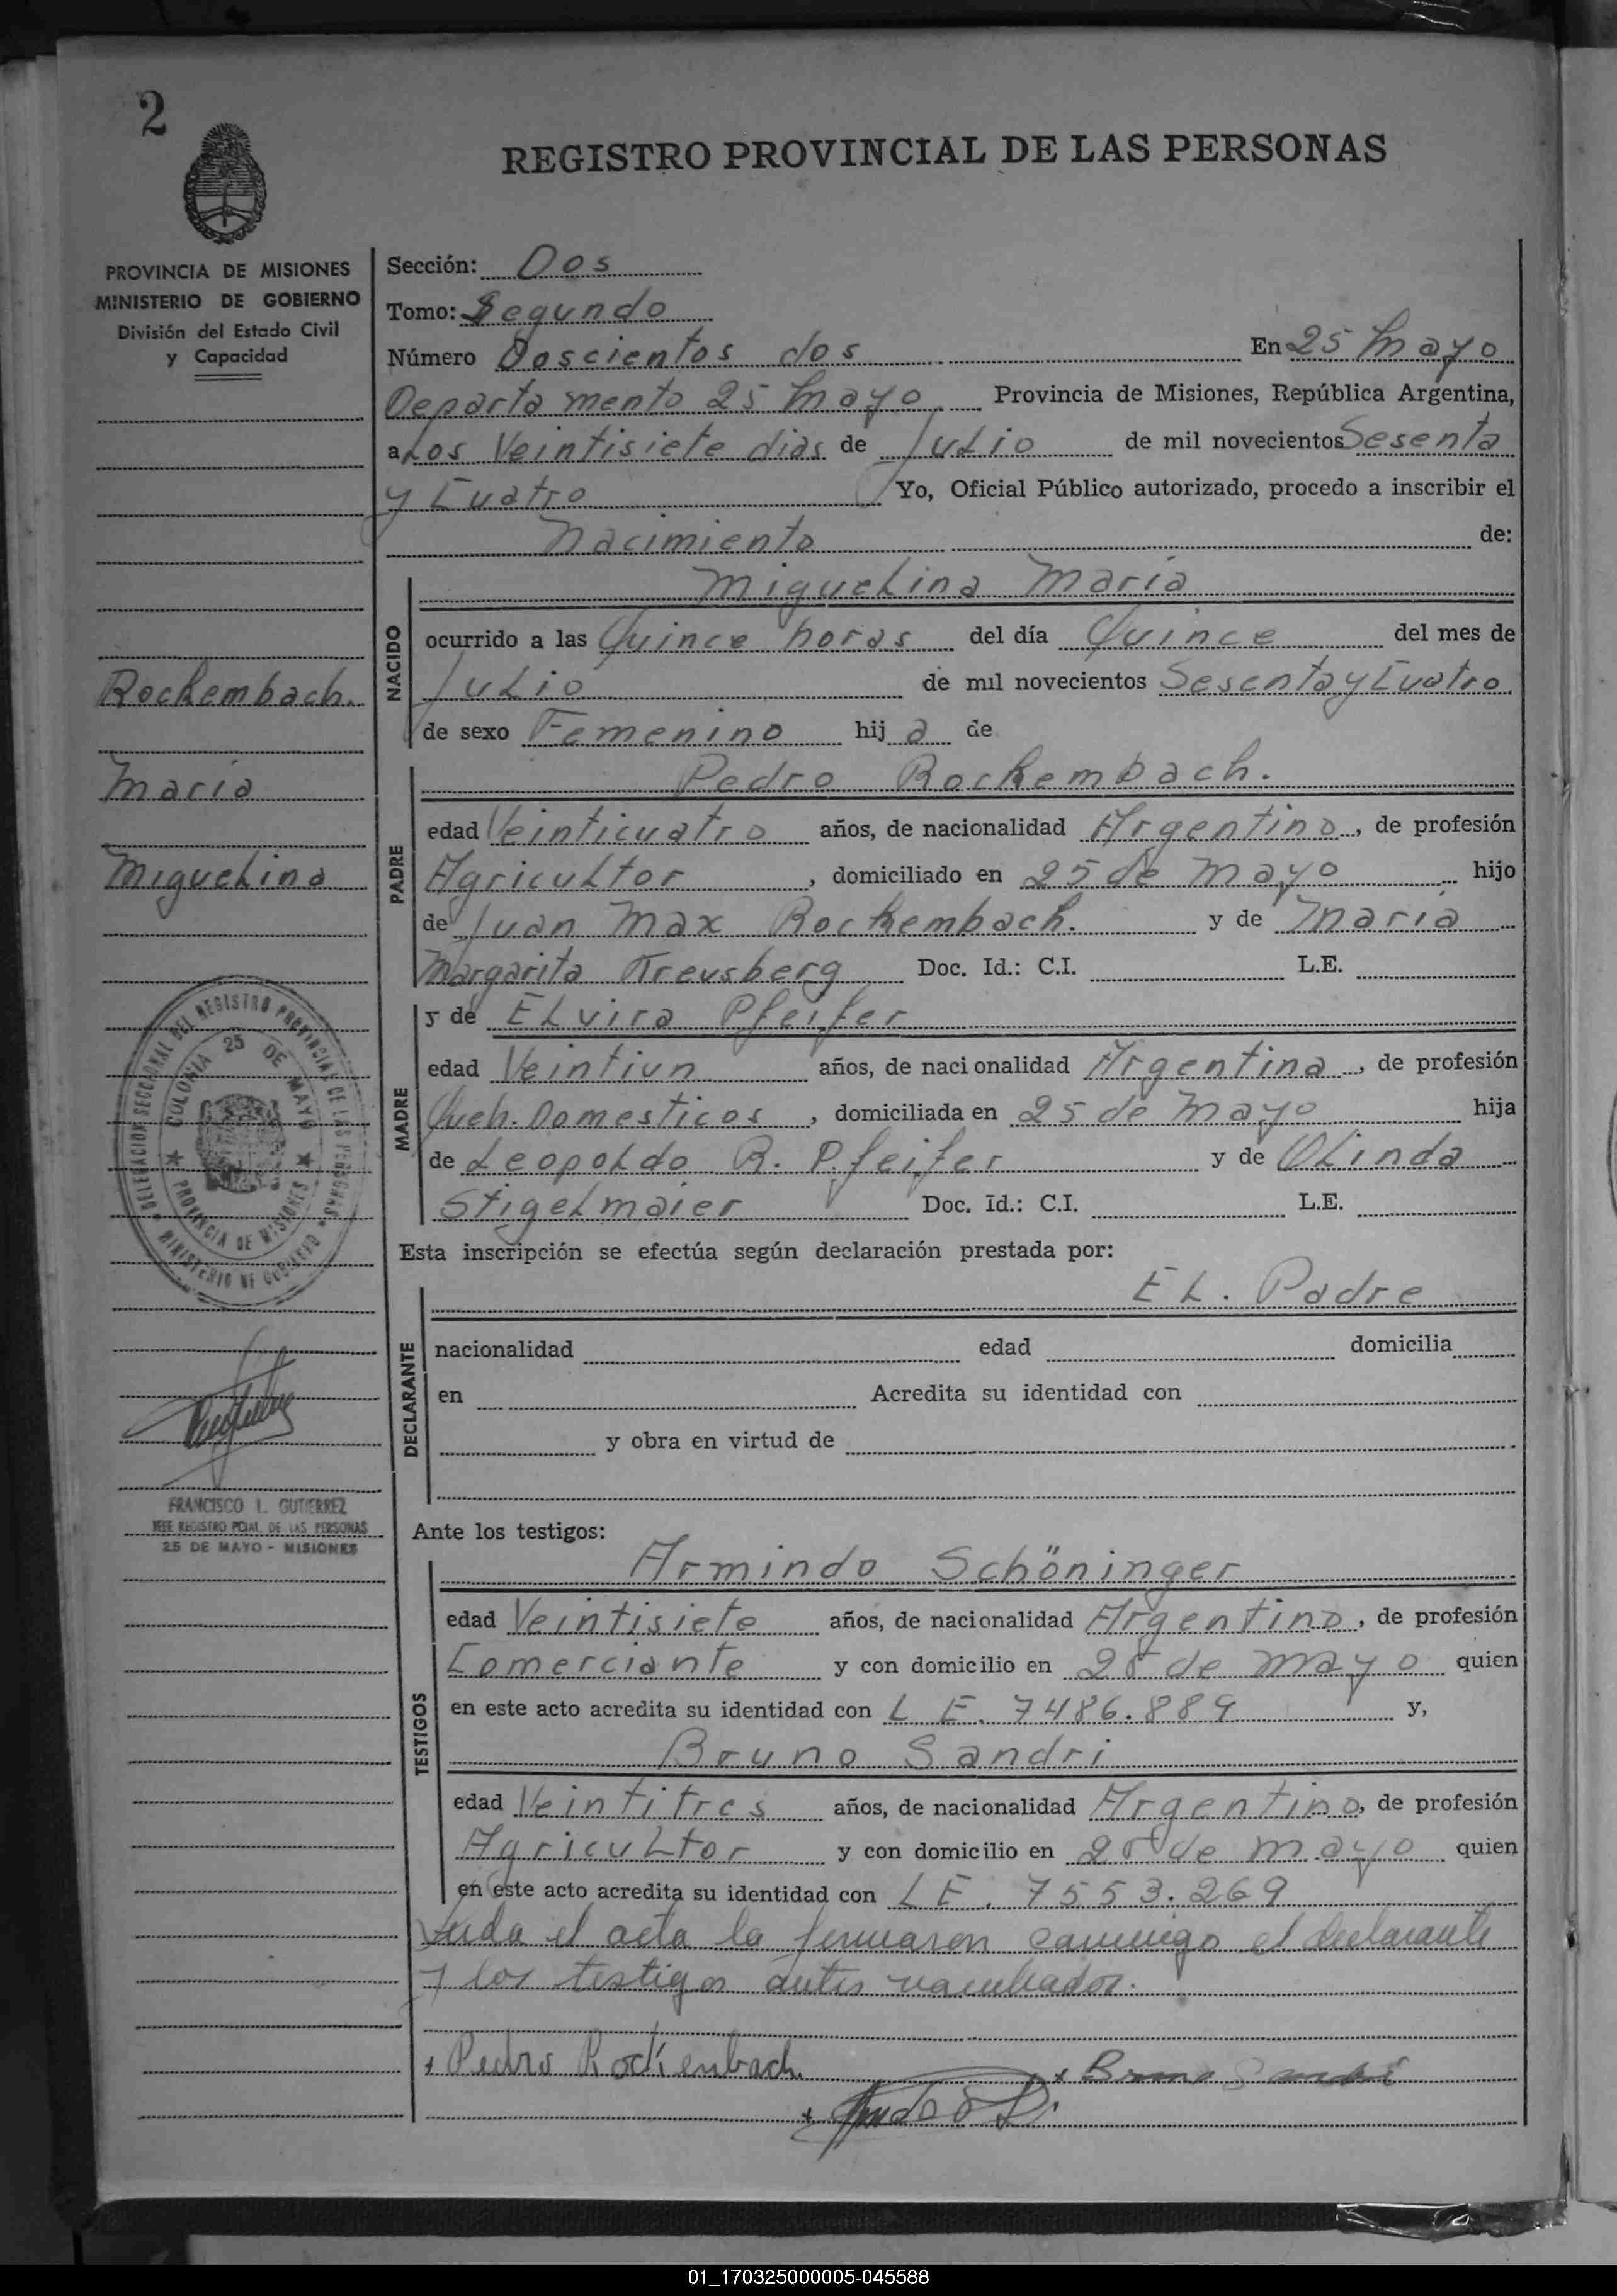 2
REGISTRO PROVINCIAL DE LAS PERSONAS
PROVINCIA DE MISIONES
MINISTERIO DE GOBIERNO
División del Estado Civil
y Capacidad
Rockembach.
Maria
Miguelina
DELEGACION SECCIONAL DEL REGISTRO PROVINCIAL DE LAS PERSONAS
MINISTERIO DE GOBIERNO
COLONIA 25 DE MAYO
PROVINCIA DE MISIONES
FRANCISCO I. GUTIERREZ
JEFE REGISTRO PCIAL. DE LAS PERSONAS
25 DE MAYO - MISIONES
Sección: Dos
Tomo: Segundo
Número Doscientos dos En 25 Mayo
Departamento 25 Mayo Provincia de Misiones, República Argentina,
a Los Veintisiete dias de Julio de mil novecientos Sesenta
y Cuatro Yo, Oficial Público autorizado, procedo a inscribir el
Nacimiento de:
NACIDO
Miguelina Maria
ocurrido a las Quince horas del día Quince del mes de
Julio de mil novecientos Sesenta y Cuatro
de sexo Femenino hij a de
PADRE
Pedro Rockembach.
edad Veinticuatro años, de nacionalidad Argentino, de profesión
Agricultor, domiciliado en 25 de Mayo hijo
de Juan Max Rockembach. y de Maria
Margarita Treusberg Doc. Id.: C.I. L.E.
MADRE
y de Elvira Pfeifer
edad Veintiun años, de naci onalidad Argentina, de profesión
Queh. Domesticos, domiciliada en 25 de Mayo hija
de Leopoldo R. Pfeifer y de Olinda
Stigelmaier Doc. Id.: C.I. L.E.
Esta inscripción se efectúa según declaración prestada por:
DECLARANTE
El. Padre
nacionalidad edad domicilia
en Acredita su identidad con
y obra en virtud de
Ante los testigos:
TESTIGOS
Armindo Schöninger
edad Veintisiete años, de nacionalidad Argentino, de profesión
Comerciante y con domicilio en 25 de Mayo quien
en este acto acredita su identidad con L E. 7486.889 y,
Bruno Sandri
edad Veintitres años, de nacionalidad Argentino, de profesión
Agricultor y con domicilio en 25 de Mayo quien
en este acto acredita su identidad con LE. 7553.269
Leida el acta la firmaron conmigo el declarante
y los testigos antes nombrados.
+ Pedro Rockenbach + Bruno Sandri
01_170325000005-045588